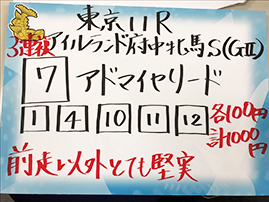 東京11R
3連複 アイルランド府中牝馬S(GⅡ)
7 アドマイヤリード
1 4 10 11 12 各100円
計1000円
前走以外とても堅実